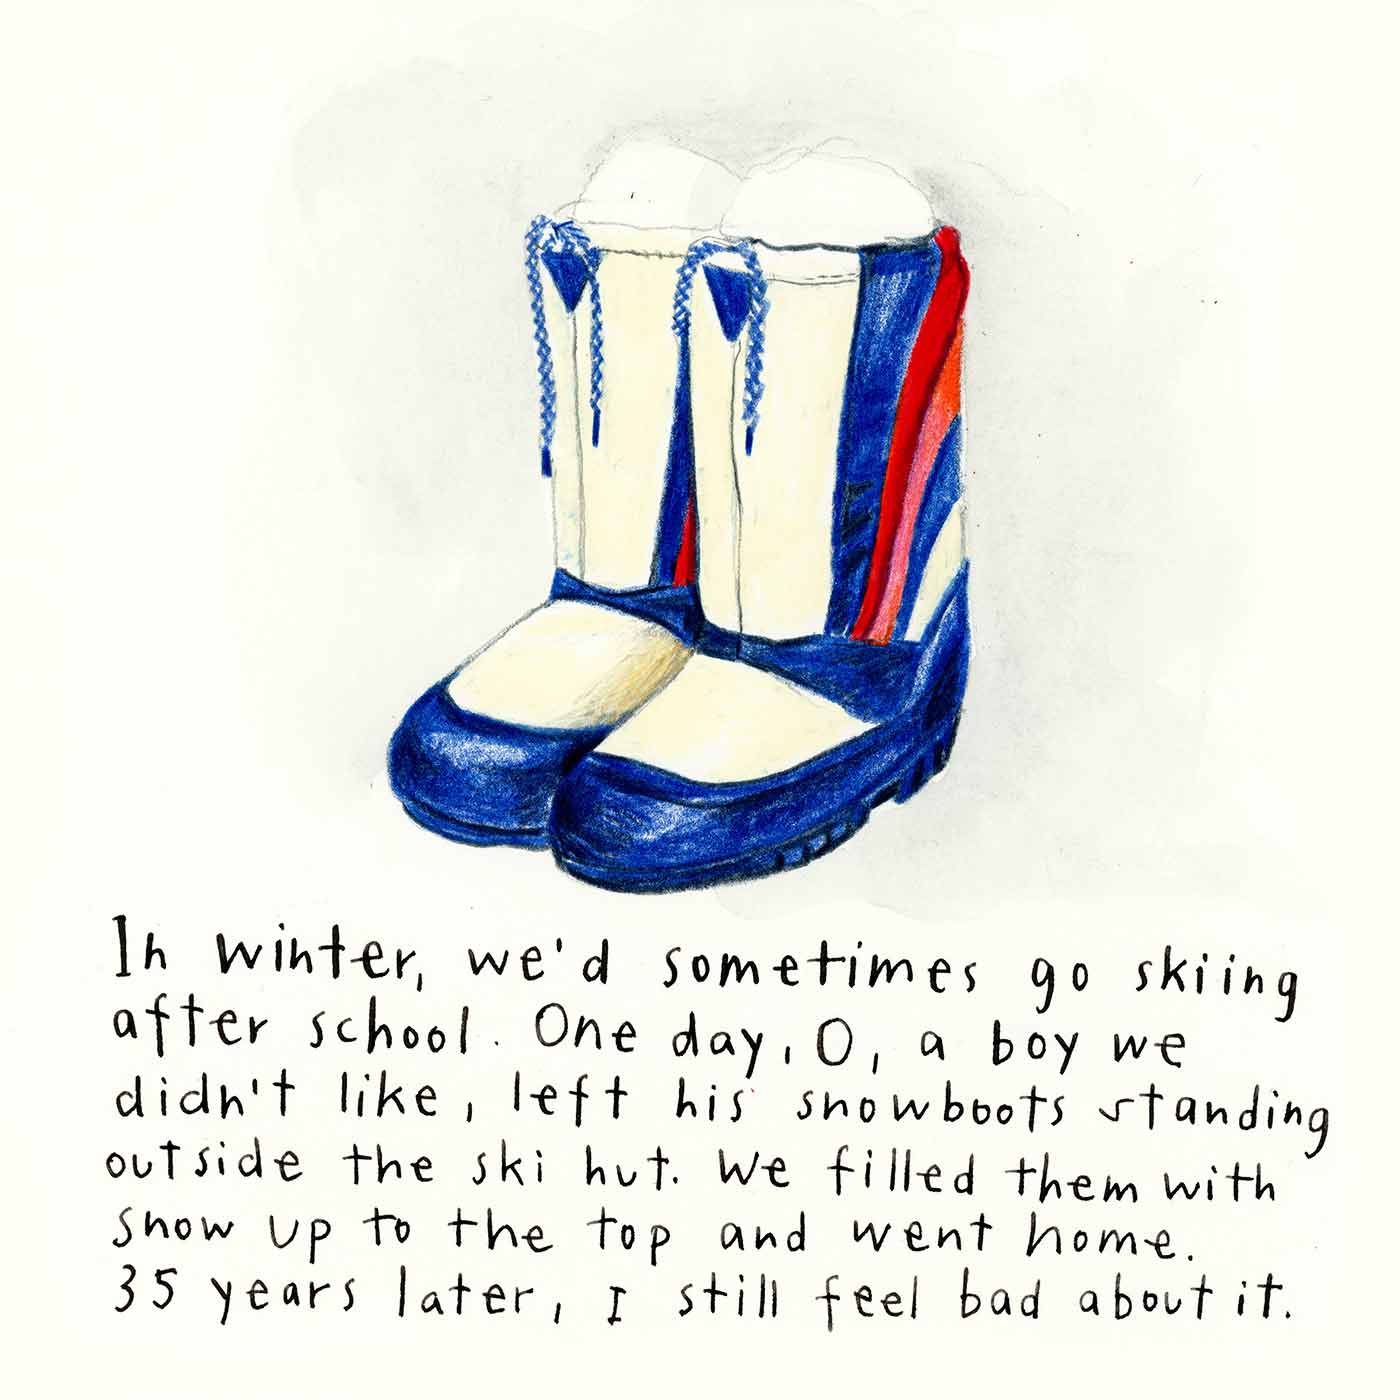 In winter, we'd sometimes go skiing
after school. One day, O, a boy we
didn't like, left his snowboots standing
outside the ski hut. We filled them with
snow up to the top and went home.
35 years later, I still feel bad about it.